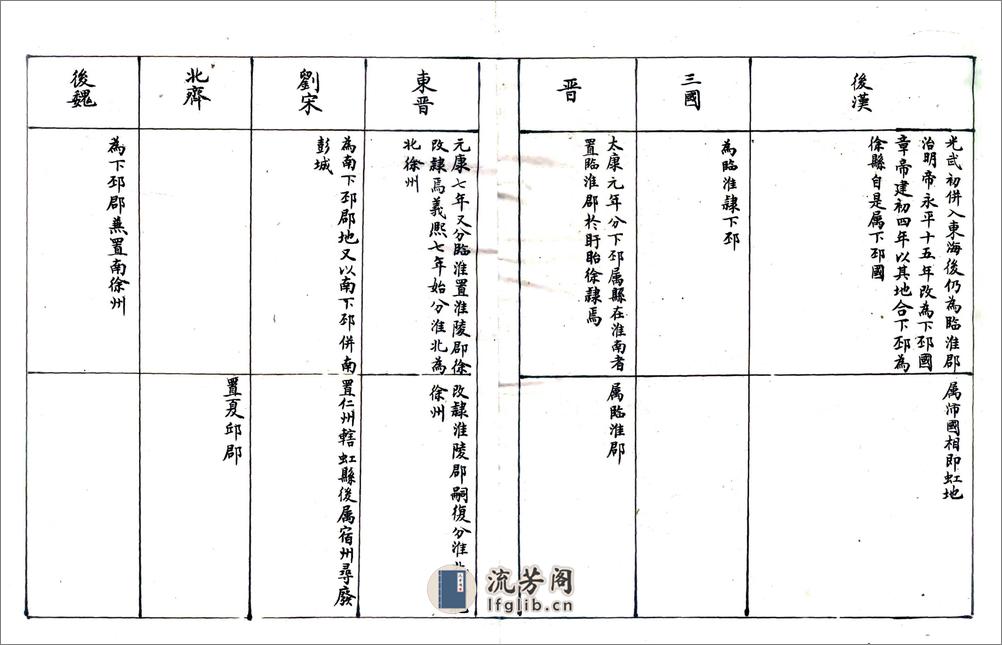 後漢
光武初併入東海後仍為臨淮郡
治明帝永平十五年改為下邳國
章帝建初四年以其地合下邳為
徐縣自是属下邳國
属沛國相即虹地
三國
為臨淮隷下邳
晋
太康元年分下邳属縣在淮南者
置臨淮郡於盱眙徐隷焉
属臨淮郡
東晋
元康七年又分臨淮置淮陵郡徐
改隷焉義熙七年始分淮北為
北徐州
改隷淮陵郡嗣復分淮北
徐州
劉宋
為南下邳郡地又以南下邳併南
彭城
置仁州轄虹縣後属宿州尋廢
北齊
置夏邱郡
後魏
為下邳郡蕪置南徐州
流芳阁
lfglib.cn